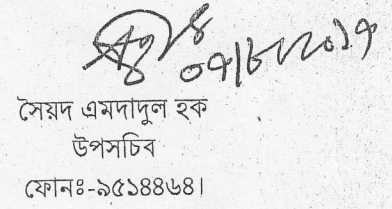 ০৭/৮/২০১৭
সৈয়দ এমদাদুল হক
উপসচিব
ফোনঃ-৯৫১৪৪৬৪।